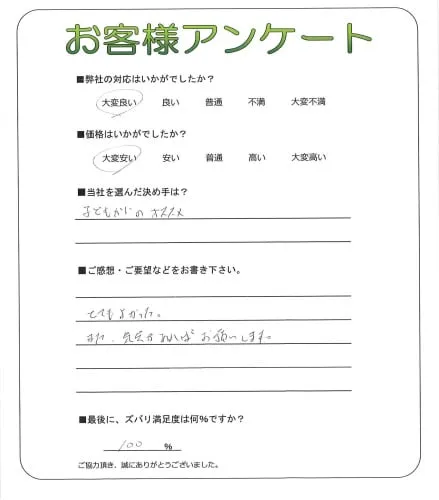 お客様アンケート
■弊社の対応はいかがでしたか？
大変良い 良い 普通 不満 大変不満
■価格はいかがでしたか？
大変安い 安い 普通 高い 大変高い
■当社を選んだ決め手は？
のオススメ
■ご感想・ご要望などをお書き下さい。
とてもよかった。
また、機会があればお願いします。
■最後に、ズバリ満足度は何%ですか？
100 %
ご協力頂き、誠にありがとうございました。